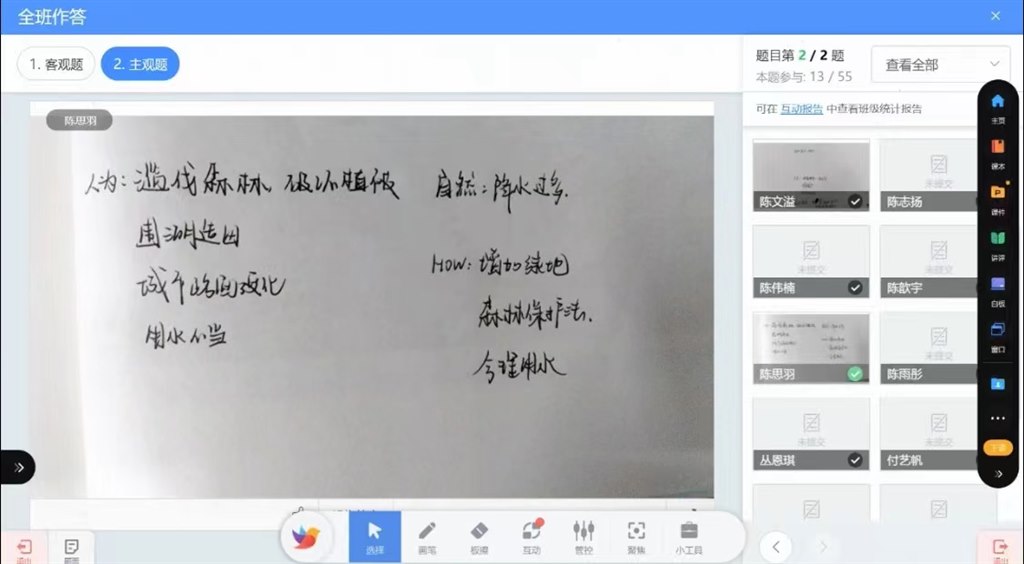 全班作答
1. 客观题
2. 主观题
题目第 2 / 2 题
本题参与: 13 / 55
查看全部
可在 互动报告 中查看班级统计报告
陈思羽
人为: 滥伐森林、破坏植被
围湖造田
城市路面硬化
用水不当
自然: 降水过多.
HOW: 增加绿地
森林保护法.
合理用水
陈文溢
未提交
陈志扬
未提交
陈伟楠
未提交
陈歆宇
陈思羽
未提交
陈雨彤
未提交
丛恩琪
未提交
付艺帆
主页
课本
课件
讲评
白板
窗口
下课
选择
画笔
板擦
互动
管控
聚焦
小工具
退出
退出